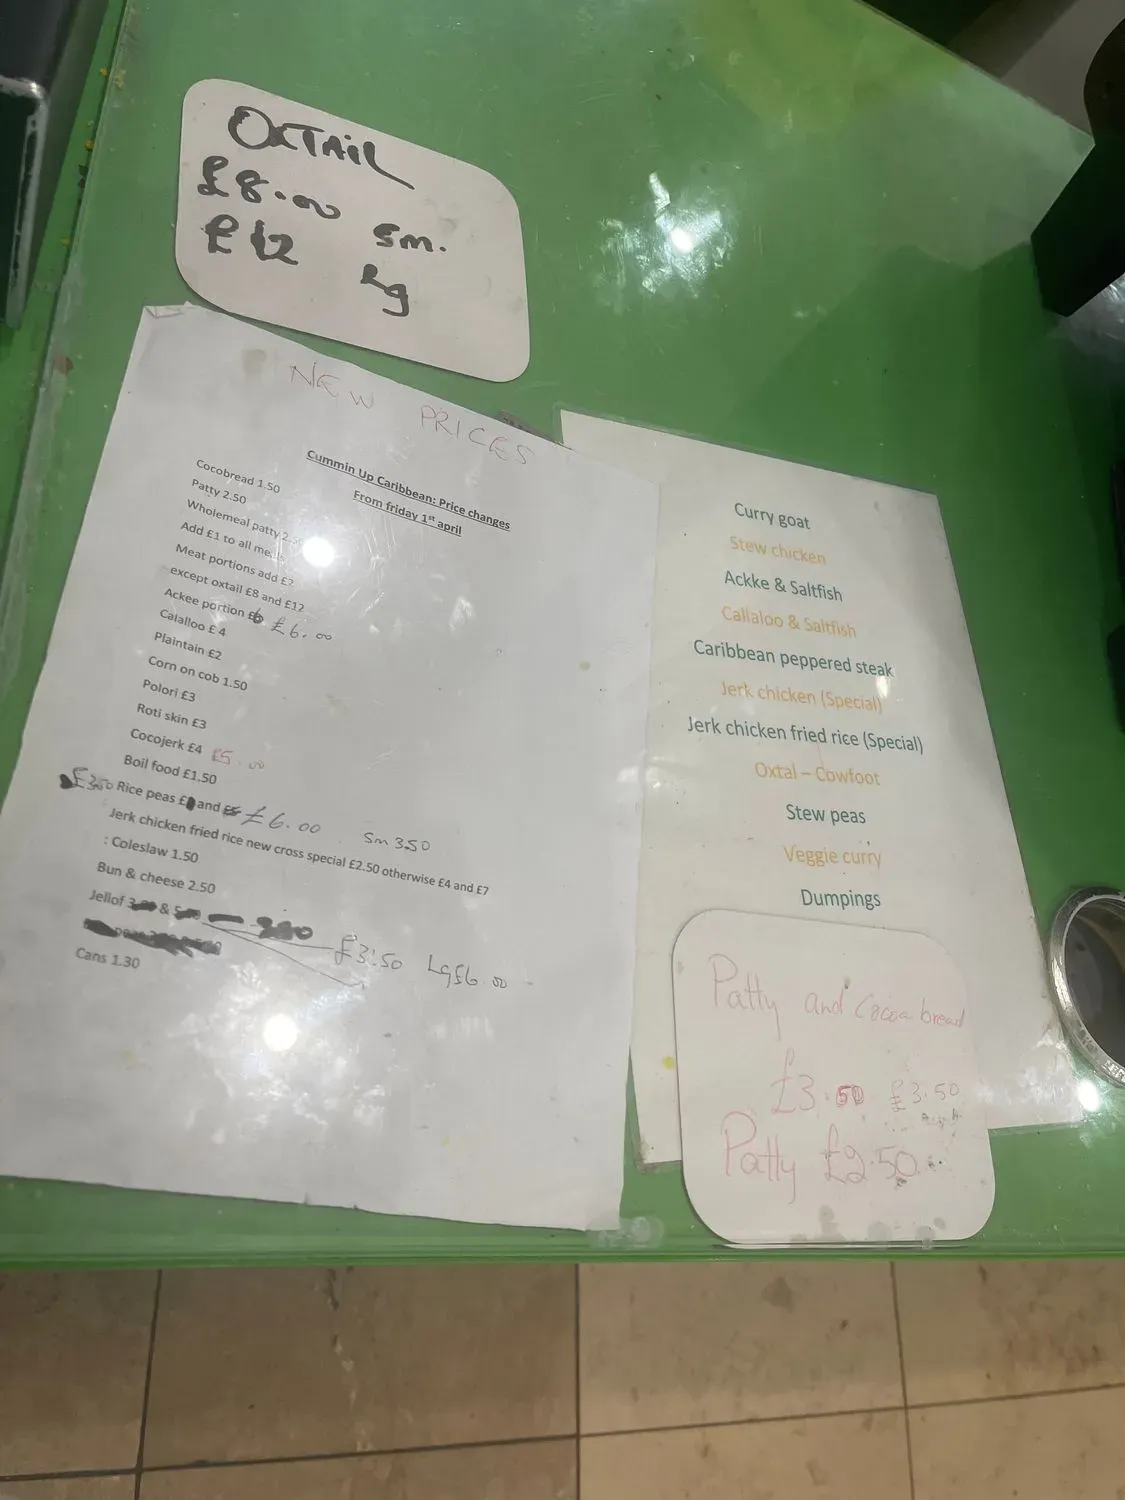 OXTAIL
£8.00 sm.
£12 Lg
NEW PRICES
Cummin Up Caribbean: Price changes
From friday 1st april
Cocobread 1.50
Patty 2.50
Wholemeal patty
Add £1 to all
Meat portions add £2
except oxtail £8 and £12
Ackee portion £6.00
Calalloo £ 4
Plaintain £2
Corn on cob 1.50
Polori £3
Roti skin £3
Cocojerk £4 £5.00
Boil food £1.50
£3.50 Rice peas and £6.00 Sm 3.50
Jerk chicken fried rice new cross special £2.50 otherwise £4 and £7
: Coleslaw 1.50
Bun & cheese 2.50
Jellof & £3.50 Lg £6.00
Cans 1.30
Curry goat
Stew chicken
Ackke & Saltfish
Callaloo & Saltfish
Caribbean peppered steak
Jerk chicken (Special)
Jerk chicken fried rice (Special)
Oxtal – Cowfoot
Stew peas
Veggie curry
Dumpings
Patty and Cocoa bread
£3.50 £3.50
Patty £2.50